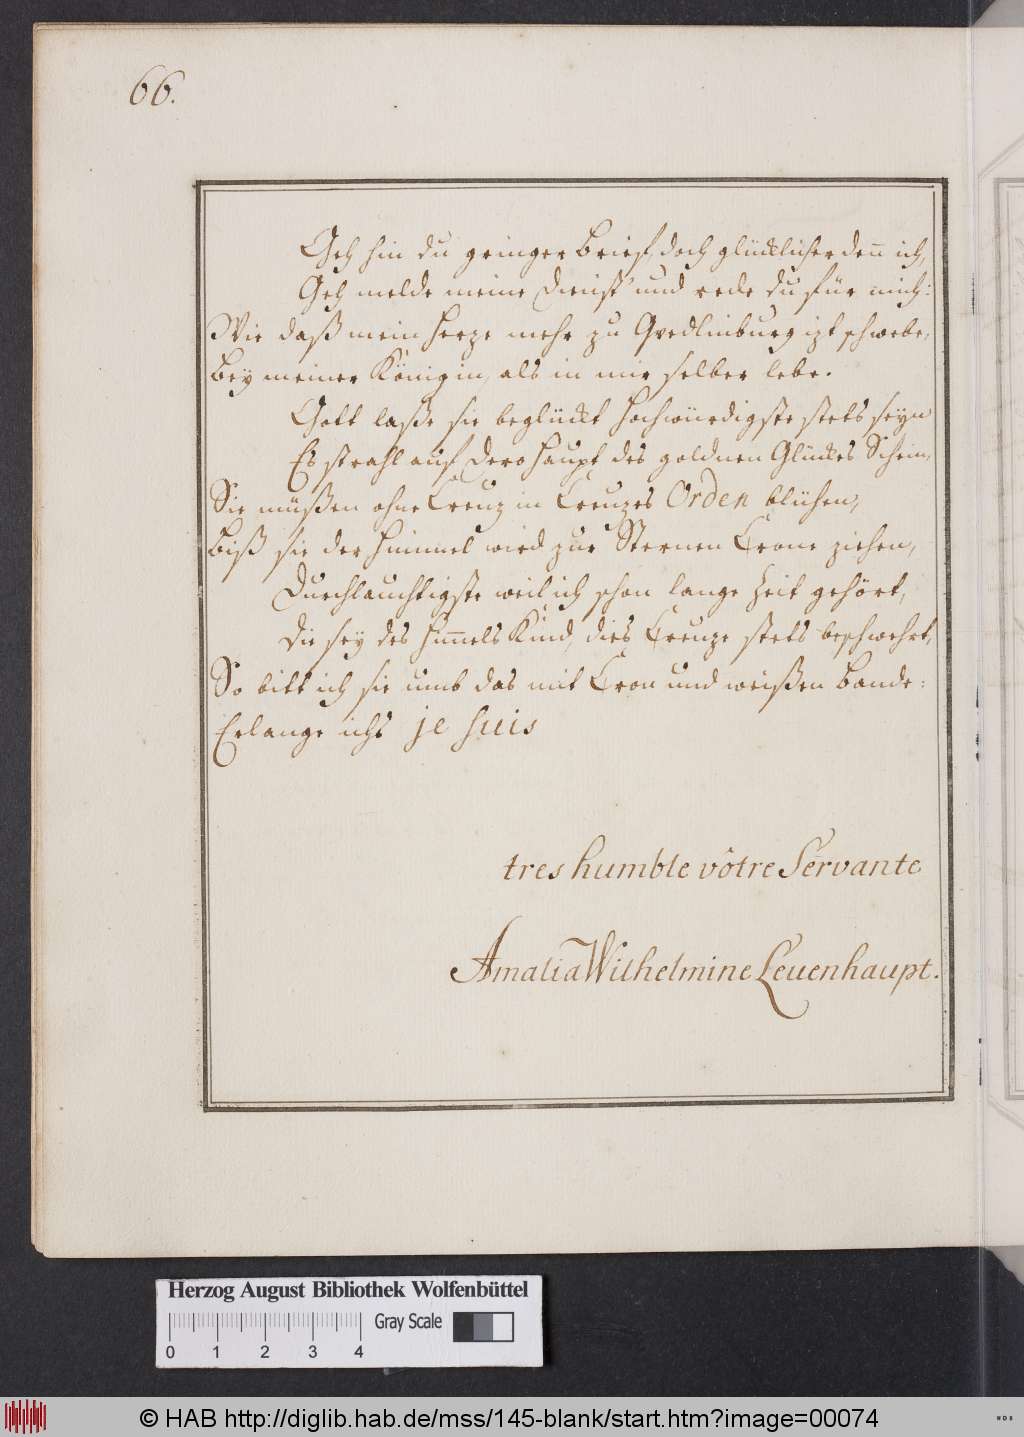 66.
Geh hin du geringer Brief, doch glücklicher den̄ ich,
Geh melde meine Dienst und rede du für mich:
Wie daß mein Herze mehr zu Qvedlinburg izt schwebe,
Bey meiner Königin, als in mir selber lebe.
Gott laße sie beglückt Hochwürdigste stets seyn
Es strahl auf Dero Haupt des goldnen Glückes Schein,
Sie müßen ohne Creuz in Creuzes Orden blühen,
Biß sie der Himmel wird zur Sternen Crone ziehen,
Durchlauchtigste weil ich schon lange Zeit gehört,
Die sey des Him̄els Kind, dies Creuze stets beschwehrt,
So bitt ich sie umb das mit Cron und weißen Bande:
Erlange ichs je suis
tres humble vôtre Servante
Amalia Wilhelmine Leuenhaupt.
Herzog August Bibliothek Wolfenbüttel
Gray Scale
0 1 2 3 4
© HAB http://diglib.hab.de/mss/145-blank/start.htm?image=00074